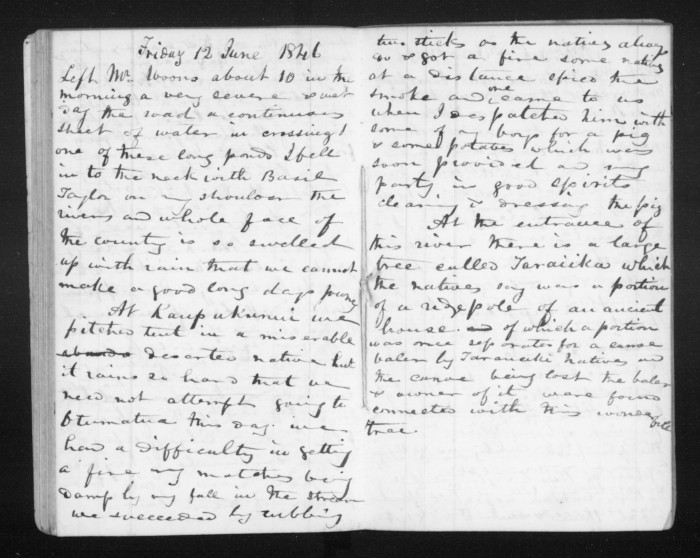 Friday 12 June 1846
Left Mr. Woons about 10 in the
morning a very severe & wet
day the road a continuous
sheet of water in crossing
one of these long ponds I fell
in to the neck with Basil
Taylor on my shoulder the
rivers and whole face of
the country is so swelled
up with rain that we cannot
make a good long days journey
At Kaupukunui we
pitched tent in a miserable
deserted native hut
it rains so hard that we
need not attempt going to
Otumatua this day. we
had a difficulty in getting
a fire my matches being
damp by my fall in the stream
we succeeded by rubbing
two sticks as the natives always
do & got a fire some natives
at a distance spied the
smoke and one came to us
when I despatched him with
some of my boys for a pig
& some potatoes which was
soon provided and my
party in good spirits
cleaning & dressing the pig
At the entrance of
this river there is a large
tree called Taraiika which
the natives say was a portion
of a ridgepole of an ancient
house of which a portion
was once separated for a canoe
baler by Taranaki natives and
the canoe being lost the baler
& owner of it were found
connected with this wonderful
tree.